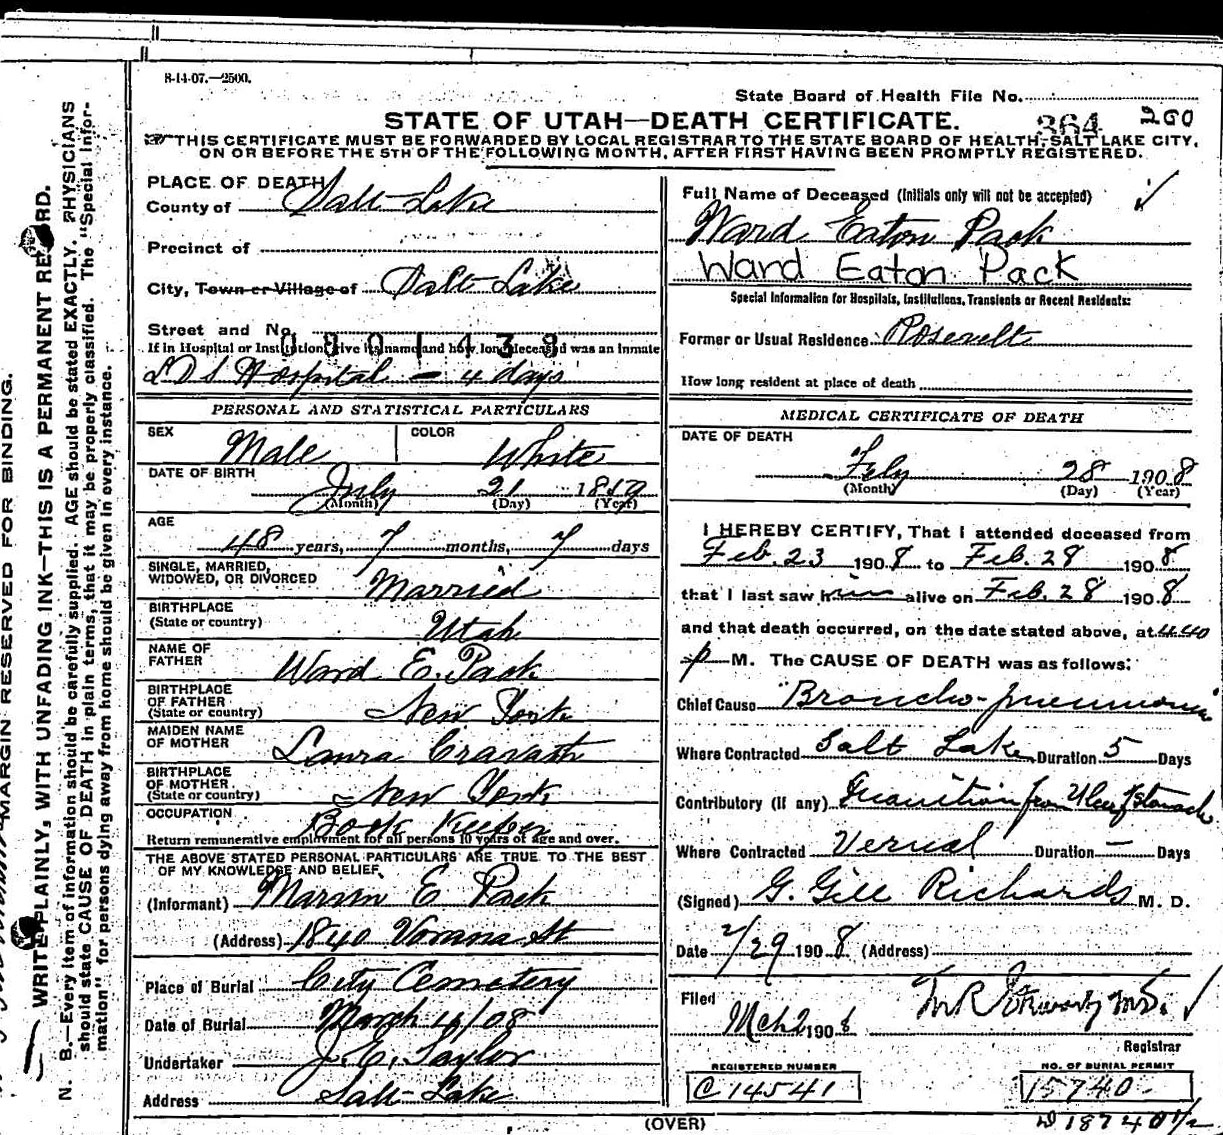 8-14-07.—2500.
State Board of Health File No.
STATE OF UTAH—DEATH CERTIFICATE.
364 200
THIS CERTIFICATE MUST BE FORWARDED BY LOCAL REGISTRAR TO THE STATE BOARD OF HEALTH, SALT LAKE CITY,
ON OR BEFORE THE 5TH OF THE FOLLOWING MONTH, AFTER FIRST HAVING BEEN PROMPTLY REGISTERED.
MARGIN RESERVED FOR BINDING.
WRITE PLAINLY, WITH UNFADING INK—THIS IS A PERMANENT RECORD.
N. B.—Every item of information should be carefully supplied. AGE should be stated EXACTLY. PHYSICIANS
should state CAUSE OF DEATH in plain terms, that it may be properly classified. The "Special Infor-
mation" for persons dying away from home should be given in every instance.
PLACE OF DEATH
County of Salt Lake
Precinct of
City, Town or Village of Salt Lake
Street and No.
0801439
If in Hospital or Institution give its name and how long deceased was an inmate
LDS Hospital — 4 days
PERSONAL AND STATISTICAL PARTICULARS
SEX Male COLOR White
DATE OF BIRTH July 21 1859
(Month) (Day) (Year)
AGE 48 years, 7 months, 7 days
SINGLE, MARRIED,
WIDOWED, OR DIVORCED Married
BIRTHPLACE
(State or country) Utah
NAME OF
FATHER Ward E. Pack
BIRTHPLACE
OF FATHER
(State or country) New York
MAIDEN NAME
OF MOTHER Laura Cravath
BIRTHPLACE
OF MOTHER
(State or country) New York
OCCUPATION Book Keeper
Return remunerative employment for all persons 10 years of age and over.
THE ABOVE STATED PERSONAL PARTICULARS ARE TRUE TO THE BEST
OF MY KNOWLEDGE AND BELIEF.
(Informant) Marvin E Pack
(Address) 1840 St
Place of Burial City Cemetery
Date of Burial March 4/08
Undertaker J. E. Taylor
Address Salt Lake
Full Name of Deceased (Initials only will not be accepted)
Ward Eaton Pack
Ward Eaton Pack
Special Information for Hospitals, Institutions, Transients or Recent Residents:
Former or Usual Residence Roosevelt
How long resident at place of death
MEDICAL CERTIFICATE OF DEATH
DATE OF DEATH
Feby 28 1908
(Month) (Day) (Year)
I HEREBY CERTIFY, That I attended deceased from
Feb. 23 1908 to Feb. 28 1908
that I last saw him alive on Feb. 28 1908
and that death occurred, on the date stated above, at 4.40
p M. The CAUSE OF DEATH was as follows:
Chief Cause Broncho-pneumonia
Where Contracted Salt Lake Duration 5 Days
Contributory (if any) Inanition from Ulcer of Stomach
Where Contracted Vernal Duration — Days
(Signed) G. Gill Richards M. D.
Date 2/29 1908 (Address)
Filed
Mch 2 1908
Registrar
REGISTERED NUMBER
C 14541
NO. OF BURIAL PERMIT
15740
18740 1/2
(OVER)